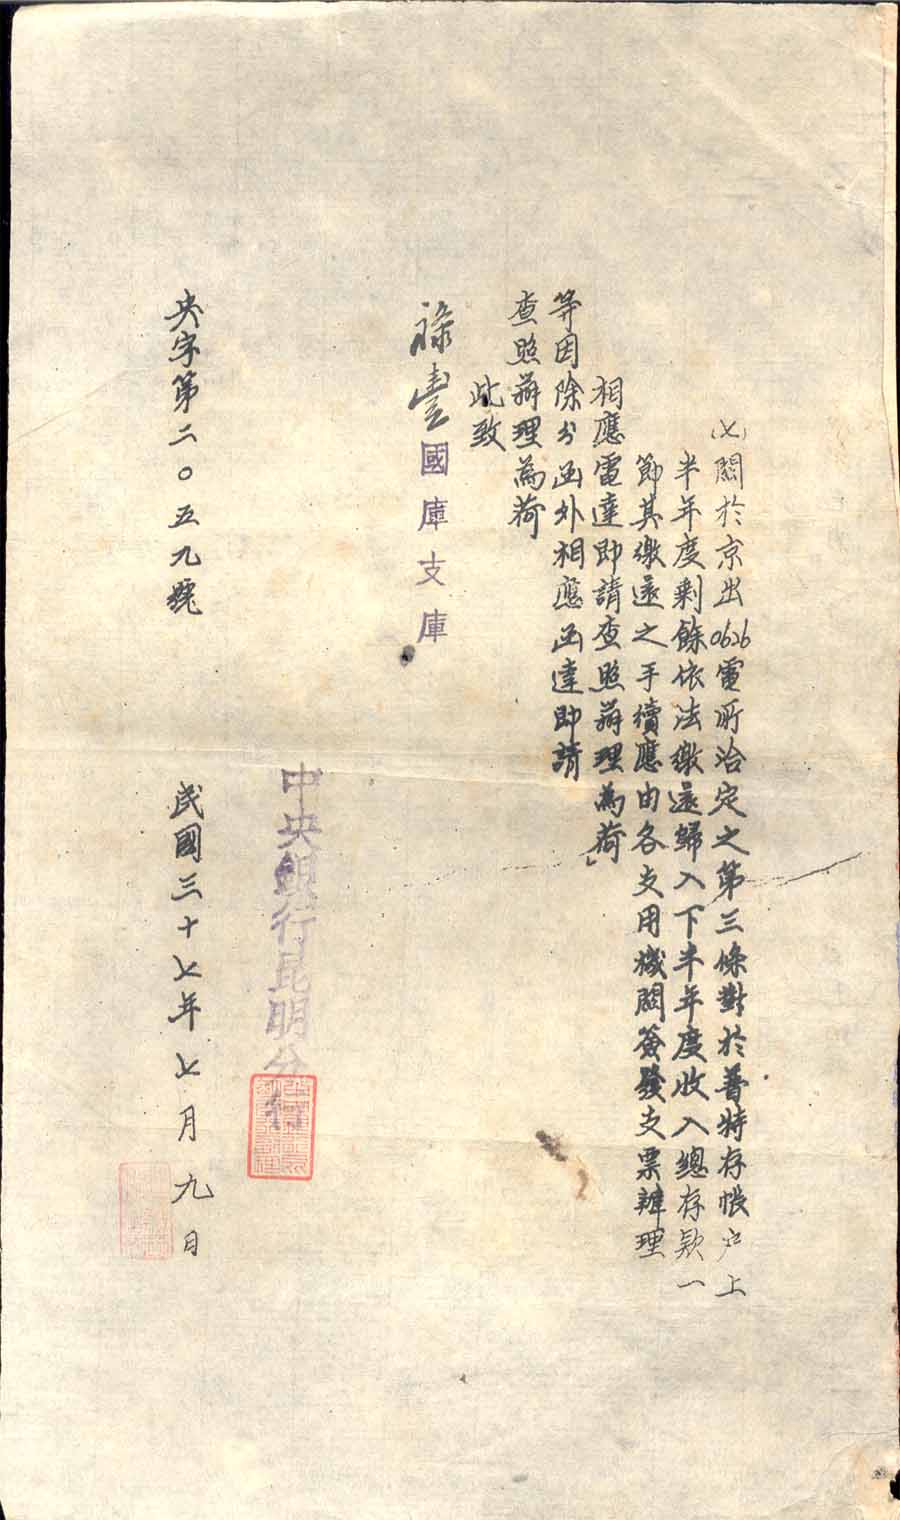 (七)關於京出0626電所洽定之第三條對於普特存帳户上
半年度剩餘依法繳還歸入下半年度收入總存款一
節其繳還之手續應由各支用機關簽發支票辦理
相應電達即請查照辦理為荷」
等因除分函外相應函達即請
查照辦理為荷
此致
祿豐國庫支庫
中央銀行昆明分行
央字第二〇五九號
民國三十七年七月九日